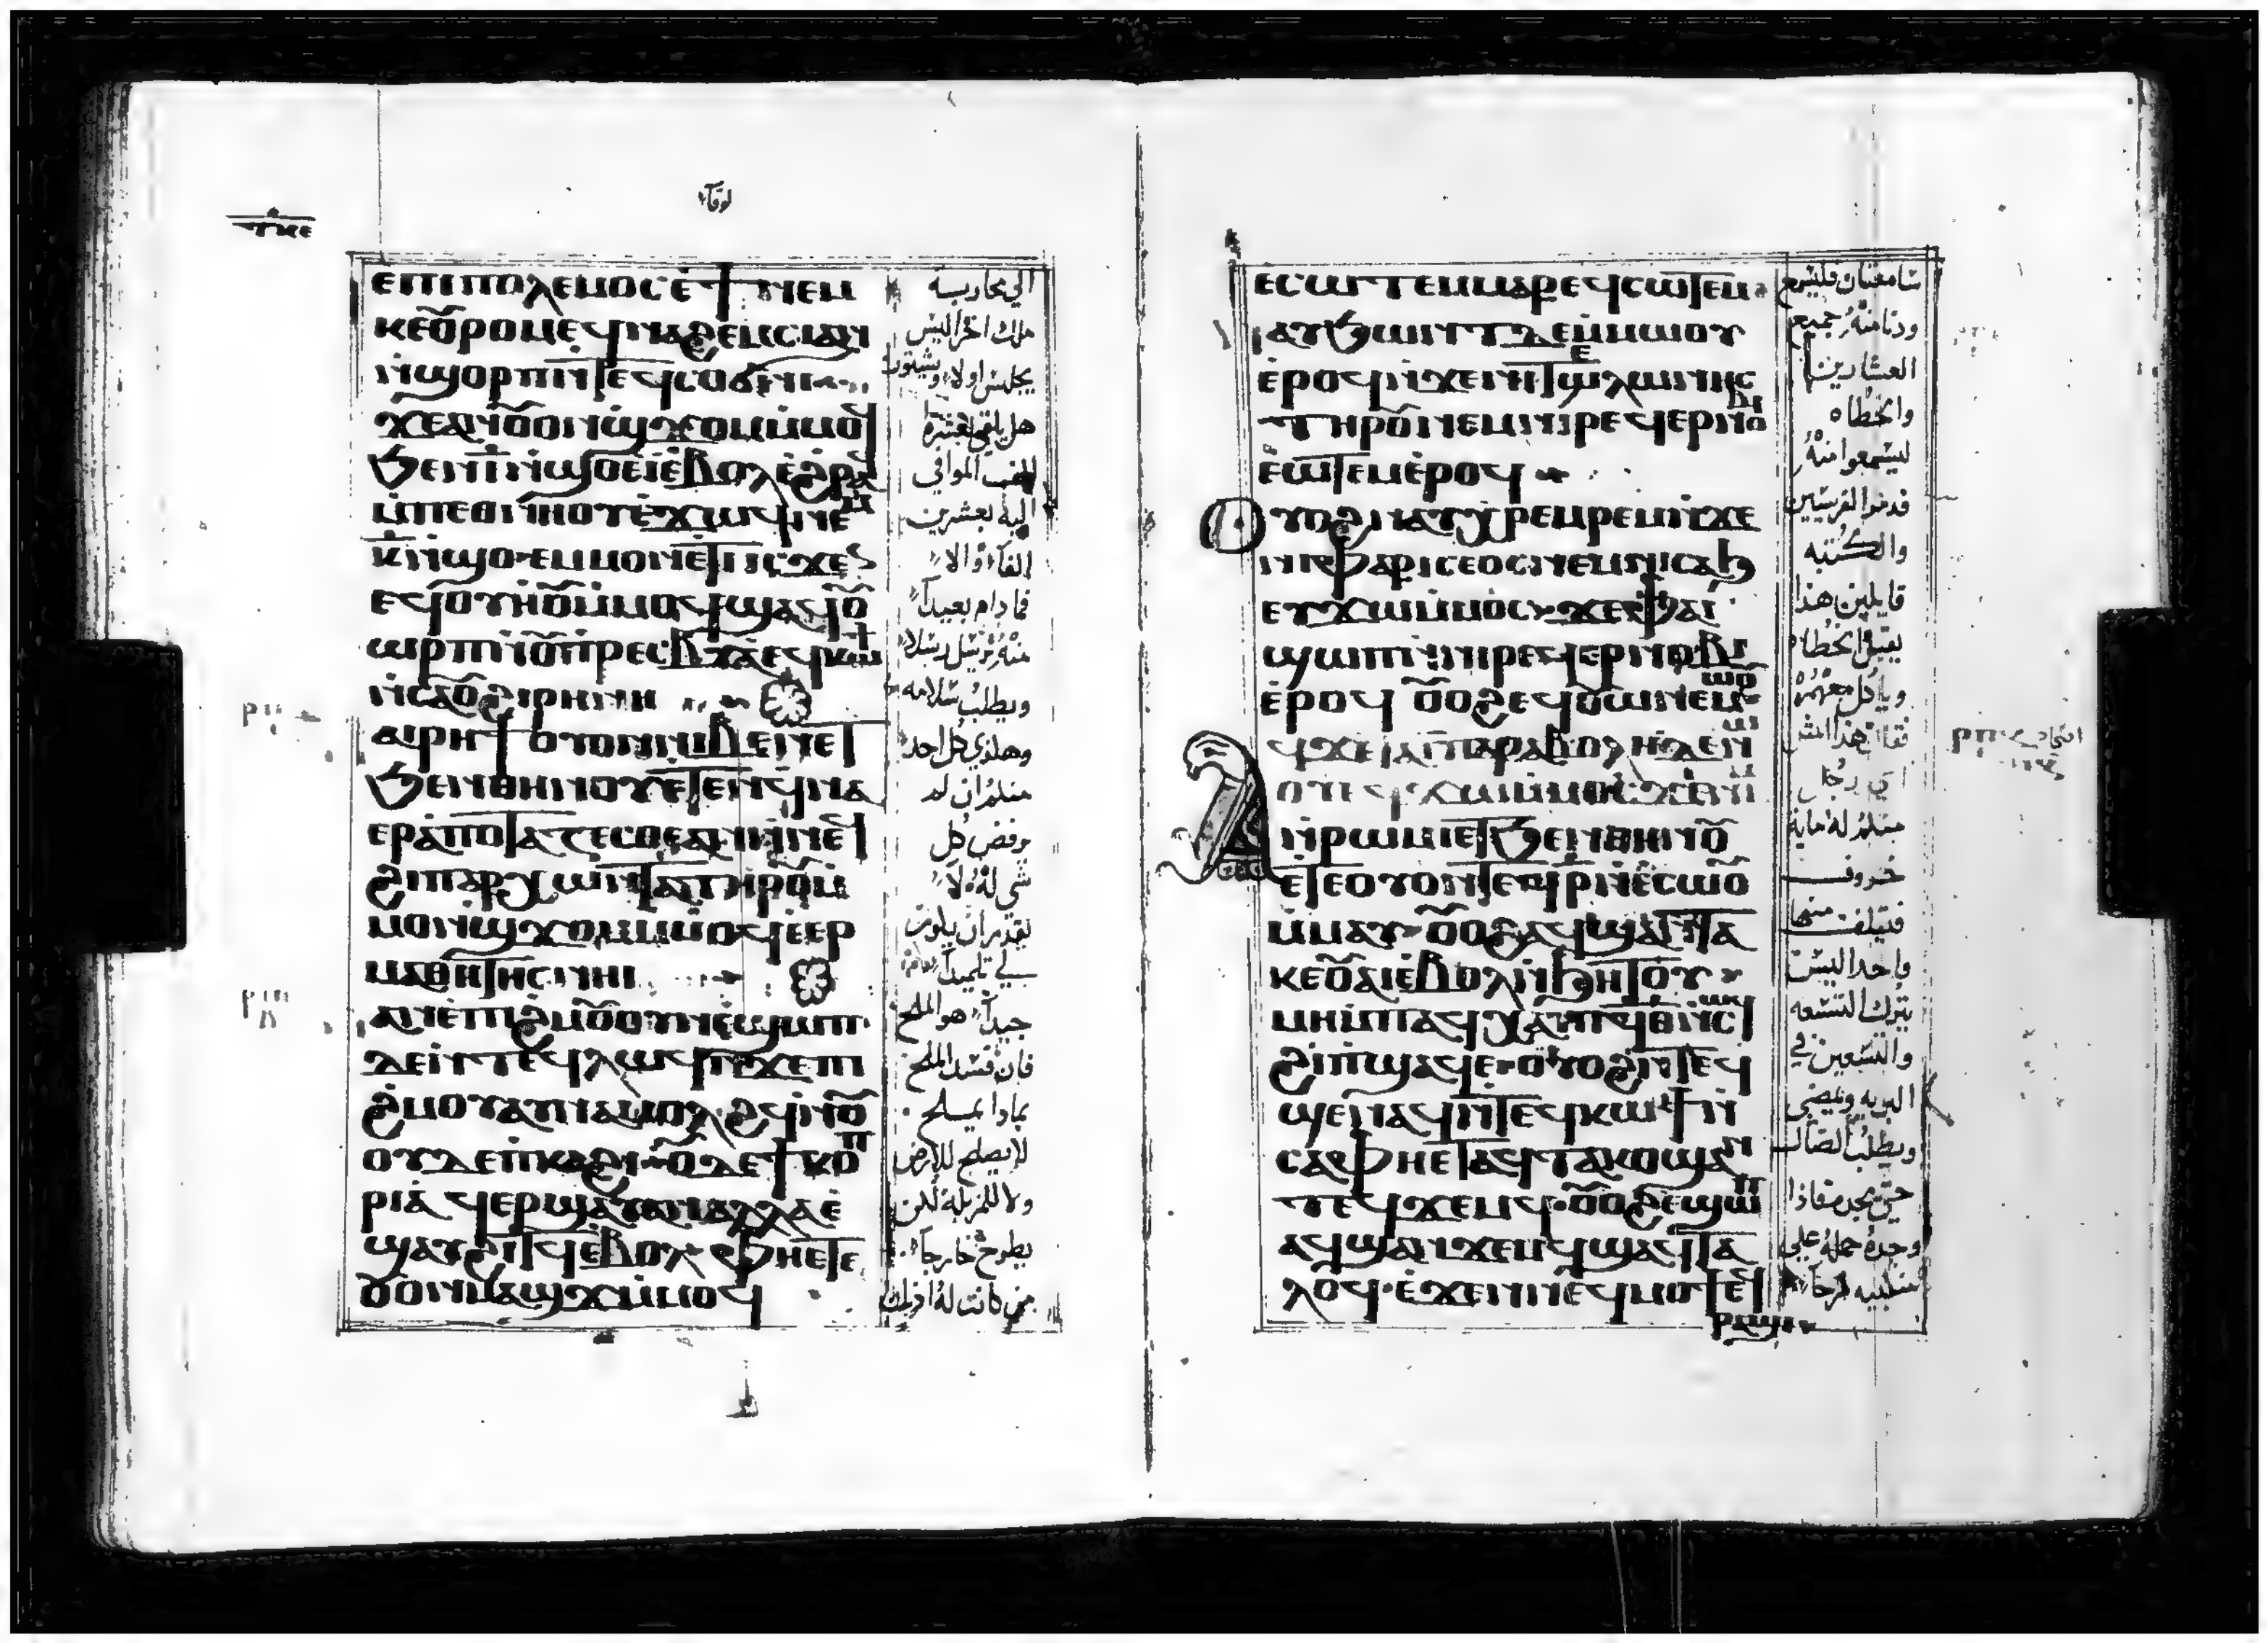 لوقا
ⲧⲕⲉ
ⲉⲡⲓⲡⲟⲗⲉⲙⲟⲥ ⲉ̀ϯ ⲛⲉⲙ
ⲕⲉⲟⲩⲣⲟ ⲙⲉ ϥⲛⲁϩⲉⲙⲥⲓ ⲁⲛ
ⲛ̀ϣⲟⲣⲡ ⲛ̀ⲧⲉϥⲥⲟϭⲛⲓ
ϫⲉ ⲁⲛ ⲟⲩⲟⲛ ⲛ̀ϣϫⲟⲙ ⲙ̀ⲙⲟϥ
ϧⲉⲛ ⲓ̅ ⲛ̀ϣⲟ ⲉ̀ⲓ ⲉ̀ⲃⲟⲗ ⲉ̀ϩⲣⲁ
ⲙ̀ⲡⲉⲑⲛⲏⲟⲩ ⲉ̀ϫⲱϥ ⲛⲉⲙ
ⲕ̅ ⲛ̀ϣⲟ ⲉⲙⲙⲟⲛ ⲉ̀ⲧⲓ ⲓⲥϫⲉ
ⲉϥⲟⲩⲏⲟⲩ ⲙ̀ⲙⲟϥ ϣⲁϥⲟⲩ
ⲱⲣⲡ ⲛ̀ⲟⲩⲡⲣⲉⲥⲃⲓⲁ ⲉϥⲕⲱϯ
ⲛ̀ⲥⲁⲟⲩϩⲓⲣⲏⲛⲏ
ⲡⲁⲓⲣⲏϯ ⲟⲩⲟⲛ ⲛⲓⲃⲉⲛ ⲉⲧ
ϧⲉⲛ ⲑⲏⲛⲟⲩ ⲉ̀ⲧⲉⲛϥⲛⲁ
ⲉⲣⲁ̀ⲡⲟⲧⲁⲍⲉⲥⲑⲉ ⲁⲛ ⲛ̀ⲛⲉϥ
ϩⲩⲡⲁⲣⲭⲱⲛⲧⲁ ⲧⲏⲣⲟⲩ ⲙ
ⲙⲟⲛ ϣϫⲟⲙ ⲙ̀ⲙⲟϥ ⲉ̀ⲉⲣ
ⲙⲁⲑⲏⲧⲏⲥ ⲛⲏⲓ
ⲛⲁⲛⲉ ⲡⲓϩⲙⲟⲩ ⲟⲩⲛ ⲉ̀ϣⲱⲡ
ⲇⲉ ⲛ̀ⲧⲉϥⲗⲱϥ ⲛ̀ϫⲉ ⲡⲓ
ϩⲙⲟⲩ ⲁⲩⲛⲁⲙⲟⲗϩϥ ⲛ̀ⲟⲩ
ⲟⲩⲇⲉ ⲡⲕⲁϩⲓ ⲟⲩⲇⲉ ϯⲕⲟⲡ
ⲣⲓⲁ ϥⲉⲣϣⲁⲩ ⲁⲛ ⲁⲗⲗⲁ ⲉ̀
ϣⲁⲩϩⲓⲧϥ ⲉ̀ⲃⲟⲗ ⲫⲏⲉⲧⲉ
ⲟⲩⲟⲛ ⲙⲁϣϫ ⲙ̀ⲙⲟϥ
الي محاربة
ملك اخر اليس
يجلس اولا ويشتور
هل يلقي بعشرة
الف الموافي
اليه بعشرين
الفا والا
فمادام بعيدا
منه يرسل رسلا
ويطلب سلامه
وهكذي كل احد
منكم ان لم
يرفض كل
شي له لا
يقدر ان يكون
لي تلميدا
جيدا هو الملح
فان فسد الملح
بمادا يملح
لا يصلح للارض
ولا للمزبلة لكن
يطرح خارجا
من كانت له اذنان
ⲉⲥⲱⲧⲉⲙ ⲙⲁⲣⲉϥⲥⲱⲧⲉⲙ
ⲛⲁⲩϧⲱⲛⲧ ⲇⲉ ⲙ̀ⲙⲱⲟⲩ
ⲉ̀ⲣⲟϥ ⲛ̀ϫⲉ ⲛⲓⲧⲉⲗⲱⲛⲏⲥ
ⲧⲏⲣⲟⲩ ⲛⲉⲙ ⲛⲓⲣⲉϥⲉⲣⲛⲟⲃⲓ
ⲉ̀ⲥⲱⲧⲉⲙ ⲉ̀ⲣⲟϥ
Ⲟⲩⲟϩ ⲛⲁⲩⲭⲣⲉⲙⲣⲉⲙ ⲛ̀ϫⲉ
ⲛⲓⲫⲁⲣⲓⲥⲉⲟⲥ ⲛⲉⲙ ⲛⲓⲥⲁϧ
ⲉⲩϫⲱ ⲙ̀ⲙⲟⲥ ϫⲉ ⲫⲁⲓ
ϣⲱⲡ ⲛ̀ⲛⲓⲣⲉϥⲉⲣⲛⲟⲃⲓ
ⲉ̀ⲣⲟϥ ⲟⲩⲟϩ ⲉϥⲟⲩⲱⲙ ⲛⲉⲙⲱⲟⲩ
ⲁϥϫⲉ ⲧⲁⲓⲡⲁⲣⲁⲃⲟⲗⲏ ⲇⲉ ⲛ
ⲱⲟⲩ ⲉϥϫⲱ ⲙ̀ⲙⲟⲥ ϫⲉ ⲛⲓⲙ
ⲛ̀ⲣⲱⲙⲓ ⲉⲧϧⲉⲛ ⲑⲏⲛⲟⲩ
ⲉ̀ⲧⲉ ⲟⲩⲟⲛⲧⲉϥ ⲣ̅ ⲛ̀ⲉ̀ⲥⲱⲟⲩ
ⲙ̀ⲙⲁⲩ ⲟⲩⲟϩ ⲁϥϣⲁⲛⲧⲁ
ⲕⲉ ⲟⲩⲁⲓ ⲉ̀ⲃⲟⲗ ⲛ̀ϧⲏⲧⲟⲩ
ⲙⲏ ⲙ̀ⲡⲁϥⲭⲁ ⲡⲓϥ̅ⲑ̅ ⲛ̀ⲥ
ϩⲓ ⲡϣⲁϥⲉ ⲟⲩⲟϩ ⲛ̀ⲧⲉϥ
ϣⲉⲛⲁϥ ⲛ̀ⲧⲉϥⲕⲱϯ ⲛ
ⲥⲁ ⲫⲏⲉⲧⲁϥⲧⲁⲕⲟ ϣⲁⲛ
ⲧⲉϥϫⲉⲙϥ ⲟⲩⲟϩ ⲉϣⲱⲡ
ⲁϥϣⲁⲛϫⲉⲙϥ ϣⲁϥⲧⲁ
ⲗⲟϥ ⲉ̀ϫⲉⲛ ⲛⲉϥⲙⲟϯ ⲉϥ
ⲣⲁϣⲓ
سامعتان فليسمع
ودنا منه جميع
العشارين
والخطاه
ليسمعوا منه
فدمدم الفريسيين
والكتبه
قايلين هذا
يقبل الخطاه
وياكل معهم
فقال هذا المثل
اي رجل
منكم له ماية
خروف
فيتلف منها
واحد اليس
يترك التسعه
والتسعين في
البريه ويمضي
ويطلب الضال
حتي يجده فاذا
وجده حمله علي
منكبيه فرحا